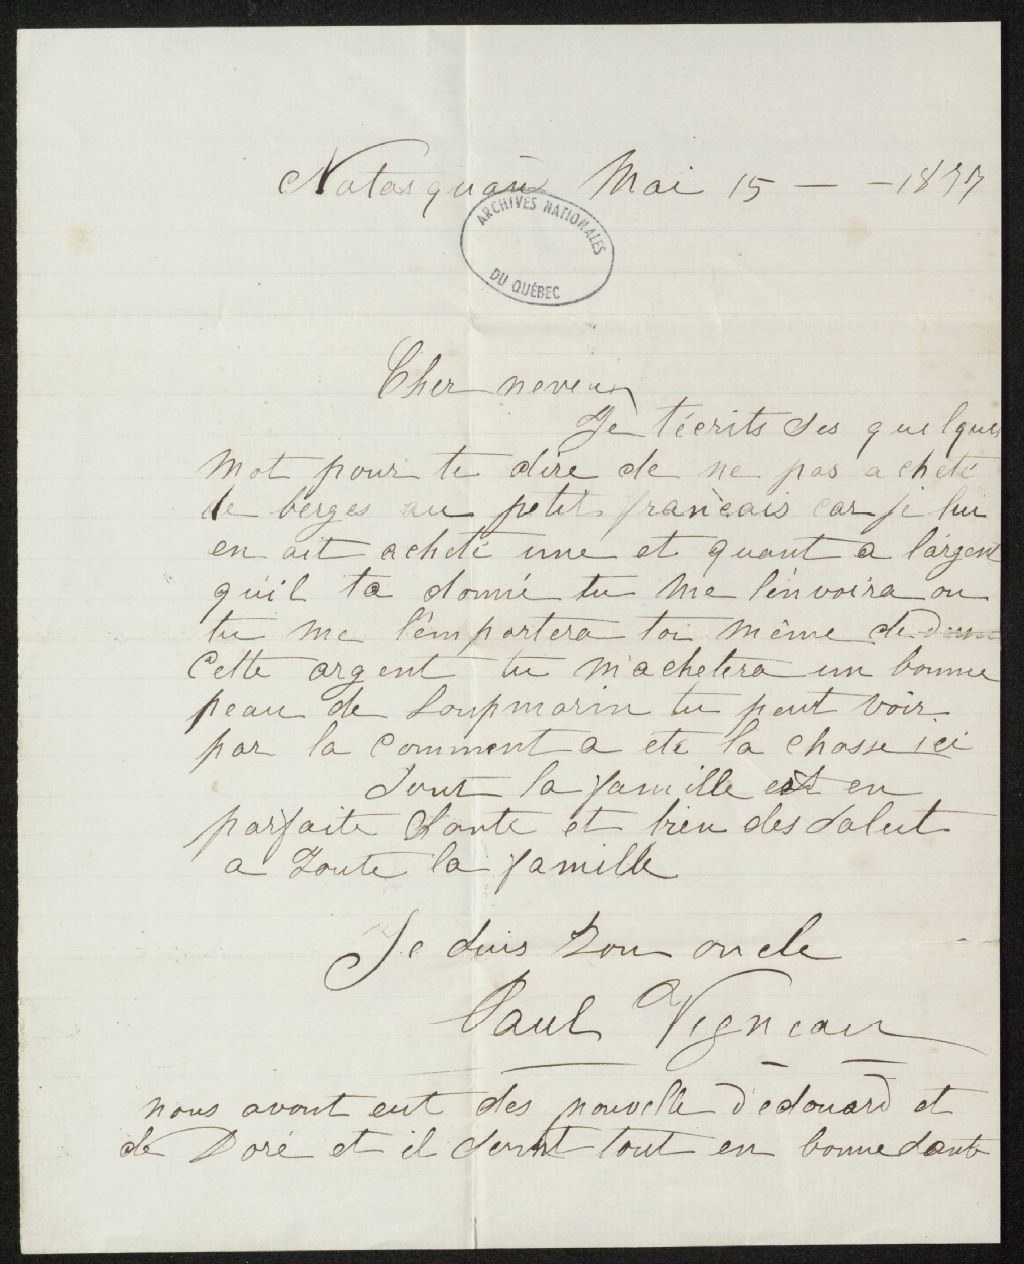 Natasquan Mai 15 — — 1877
ARCHIVES NATIONALES
DU QUÉBEC
Cher neveux
Je técrits ses quelques
mot pour te dire de ne pas acheté
de berges au petit francais car je lui
en ait acheté une et quant a l'argent
qu'il ta donné tu me l'envoira ou
tu me l'emportera toi même de
Cette argent tu m'achetera un bonne
peau de Loupmarin tu peut voir
par la comment a ete la chasse ici
Tout la famille est en
parfaite Sante et bien des Salut
a Toute la famille
Je suis Ton oncle
Paul Vigneau
nous avont eut des nouvelle d'edouard et
de Doré et il sont tout en bonne Sante